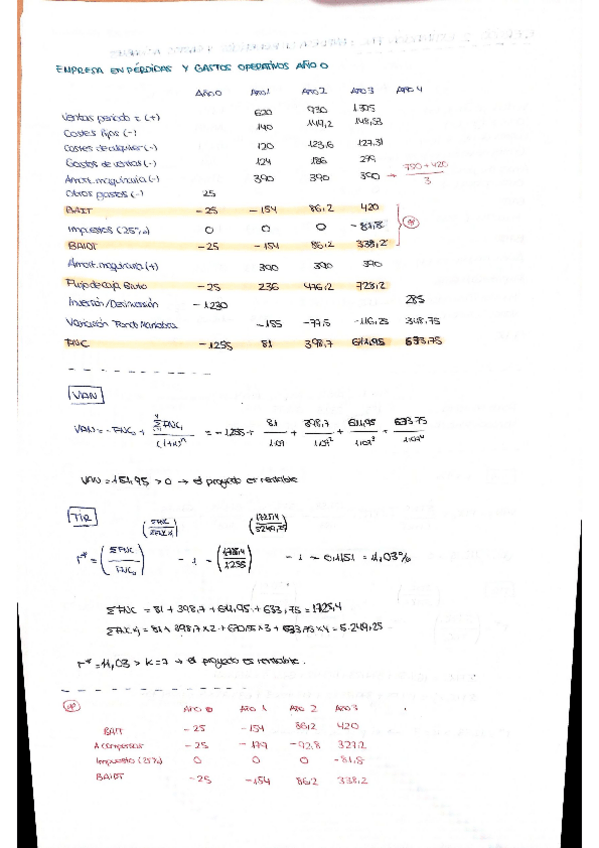 EMPRESA EN PÉRDIDAS Y GASTOS OPERATIVOS AÑO 0
Año 0 Año 1 Año 2 Año 3 Año 4
Ventas periodo t (+) 620 930 1395
Costes fijos (-) 140 144,2 148,53
Costes de alquiler (-) 120 123,6 127,31
Gastos de ventas (-) 124 186 279
Amort. maquinaria (-) 390 390 390 → 750+420 / 3
Otros gastos (-) 25
BAIT -25 -154 86,2 420
Impuestos (25%) 0 0 0 -81,8
BAIDT -25 -154 86,2 338,2
Amort. maquinaria (+) 390 390 390
Flujo de caja Bruto -25 236 476,2 728,2
Inversión/Desinversión -1230 285
Variación Fondo Maniobra -155 -77,5 -116,25 348,75
FNC -1255 81 398,7 611,95 633,75
VAN
VAN = - FNC₀ + Σ FNC / (1+k)ⁿ = -1255 + 81 / 1,07 + 398,7 / 1,07² + 611,95 / 1,07³ + 633,75 / 1,07⁴
VAN = 151,95 > 0 → el proyecto es rentable
TIR
r* = (ΣFNC / FNC₀) - 1 = (1725,4 / 1255) - 1 = 0,1151 = 11,03%
ΣFNC = 81 + 398,7 + 611,95 + 633,75 = 1725,4
r* = 11,03 > k = 7 → el proyecto es rentable.
Año 0 Año 1 Año 2 Año 3
BAIT -25 -154 86,2 420
A compensar -25 -179 -92,8 327,2
Impuesto (25%) 0 0 0 -81,8
BAIDT -25 -154 86,2 338,2